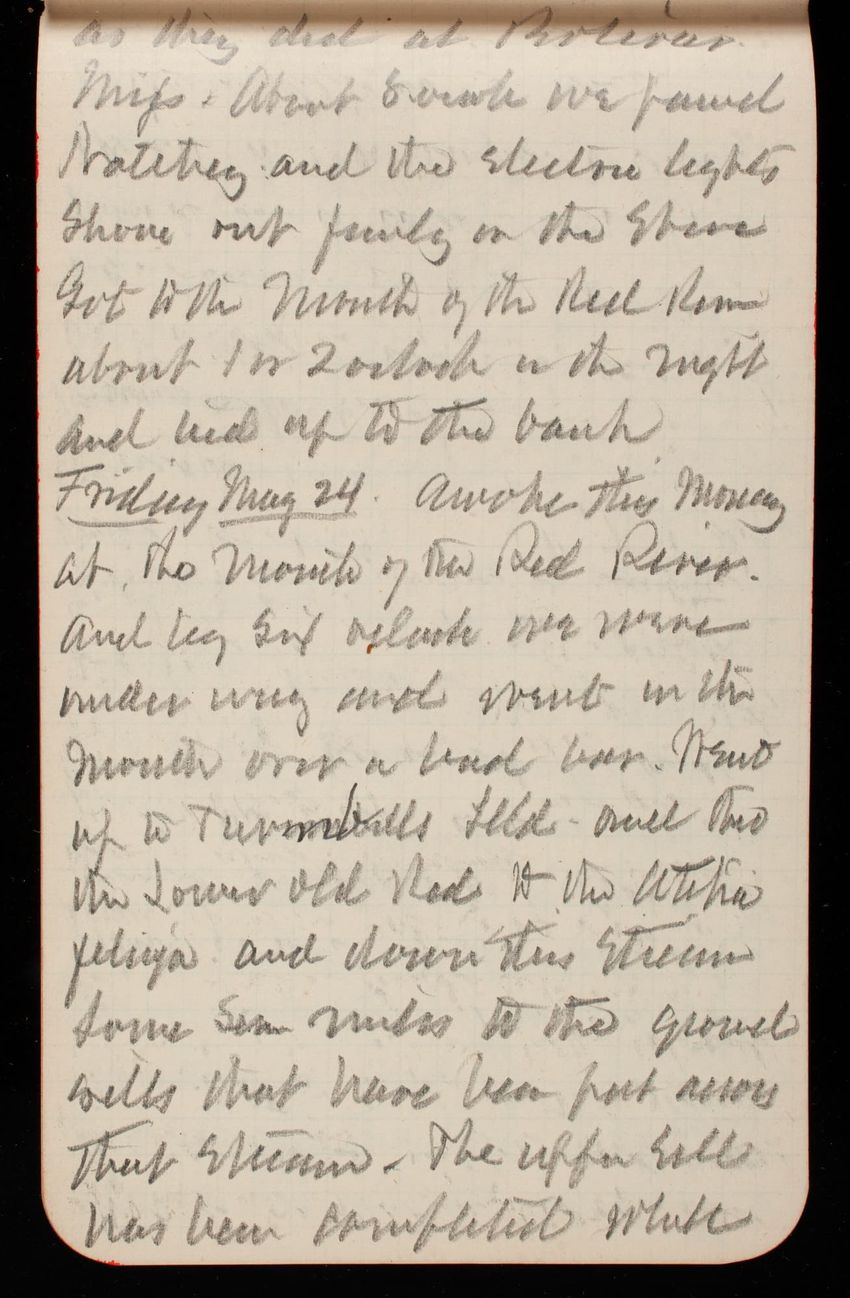 as they did at Bolivar
Miss. About 8 oclock we passed
Natchez and the electric lights
Shone out finely on the Shore
Got to the Mouth of the Red River
about 1 or 2 oclock in the night
and tied up to the bank
Friday May 24. Awoke this Morning
at the Mouth of the Red River.
And by Six oclock we were
under way and went in the
Mouth over a bad bar. Went
up to Turnbulls Isld. and then
the Lower Old Red to the Atcha
felaya and down this Stream
Some miles to the ground
sills that have been put across
That Stream. The upper Sill
has been completed while